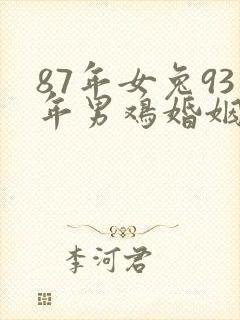 87年女兔93
年男鸡婚姻
李河君